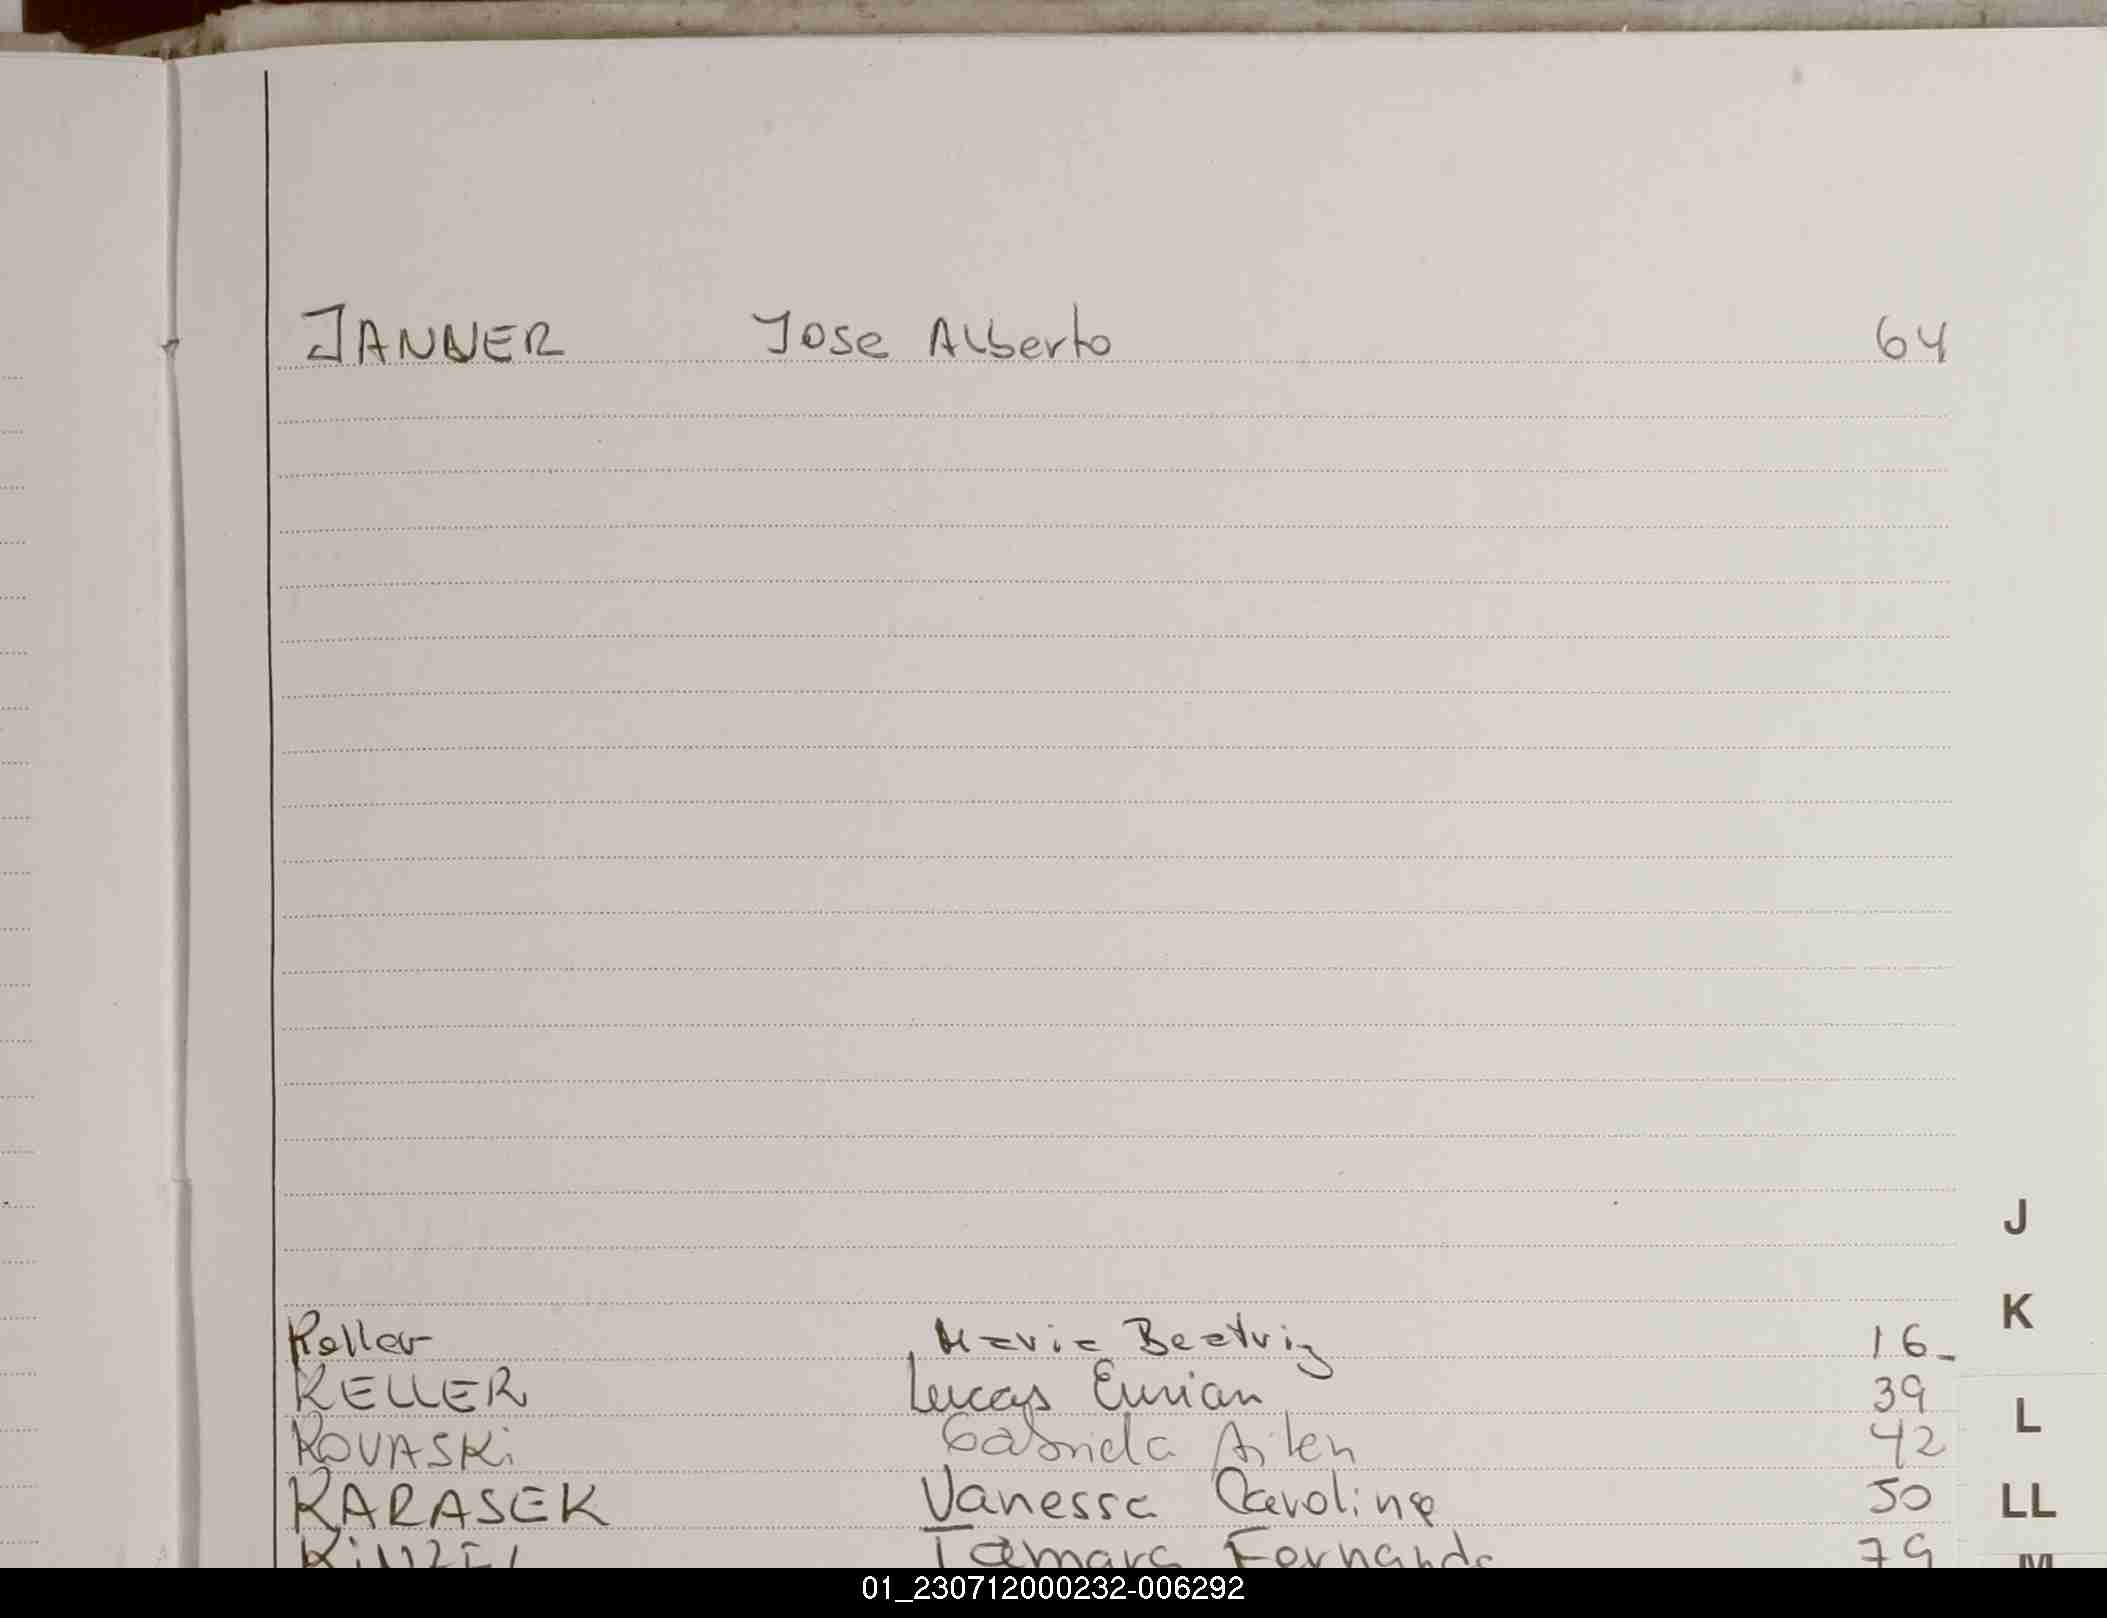 JANNER Jose Alberto 64
J
K
Keller Maria Beatriz 16
KELLER Lucas Eurian 39
L
KOVASKi Gabriela Ailen 42
KARASEK Vanessa Caroline 50
LL
Tamara Fernanda 79
M
01_230712000232-006292